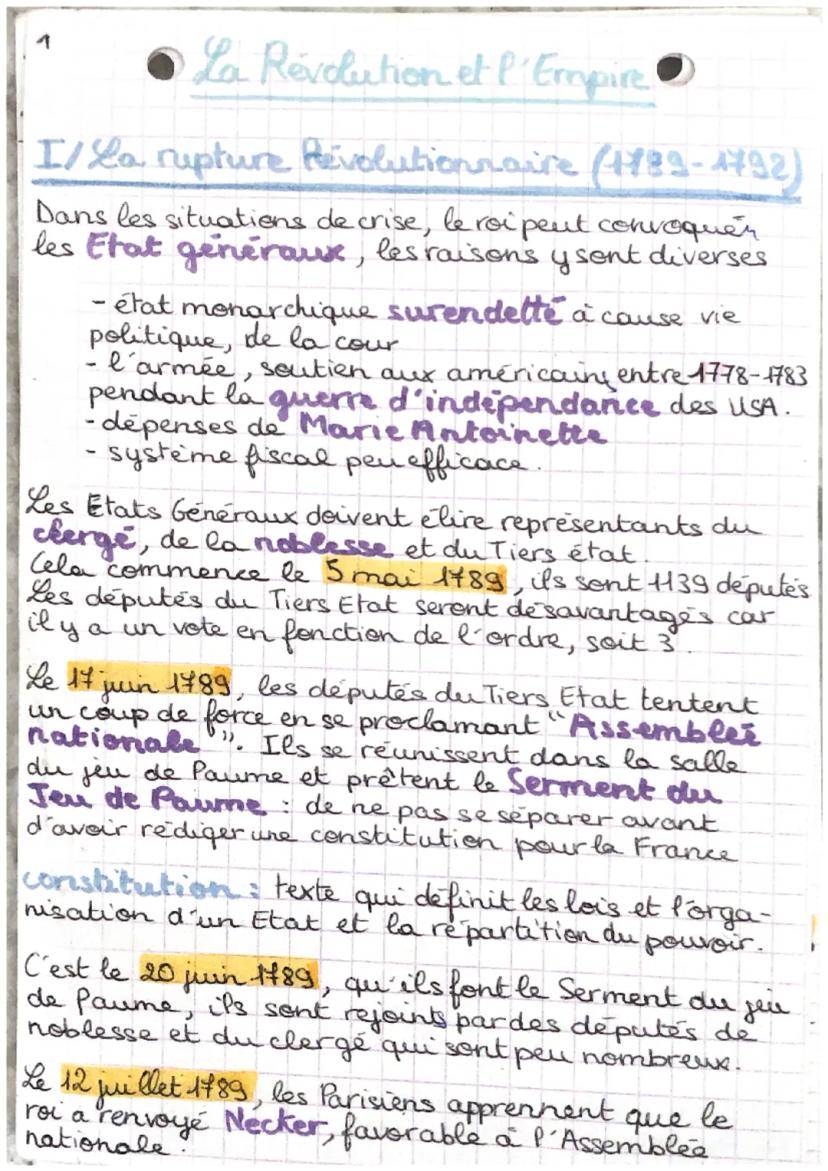 1
La Révolution et l'Empire
I/ La rupture Révolutionnaire (1789-1792)
Dans les situations de crise, le roi peut convoquer
les Etat généraux, les raisons y sont diverses
- état monarchique surendetté à cause vie
politique, de la cour
- l'armée, soutien aux américains entre 1778-1783
pendant la guerre d'indépendance des USA.
- dépenses de Marie Antoinette
- système fiscal peu efficace.
Les Etats Généraux doivent élire représentants du
clergé, de la noblesse et du Tiers état.
Cela commence le 5 mai 1789, ils sont 1139 députés
Les députés du Tiers Etat seront désavantagés car
il y a un vote en fonction de l'ordre, soit 3.
Le 17 juin 1789, les députés du Tiers Etat tentent
un coup de force en se proclamant "Assemblée
nationale". Ils se réunissent dans la salle
du jeu de Paume et prêtent le Serment du
Jeu de Paume : de ne pas se séparer avant
d'avoir rédiger une constitution pour la France
constitution : texte qui définit les lois et l'orga-
nisation d'un Etat et la répartition du pouvoir.
C'est le 20 juin 1789, qu'ils font le Serment du jeu
de Paume, ils sont rejoints par des députés de
noblesse et du clergé qui sont peu nombreux.
Le 12 juillet 1789, les Parisiens apprennent que le
roi a renvoyé Necker, favorable à l'Assemblée
nationale.